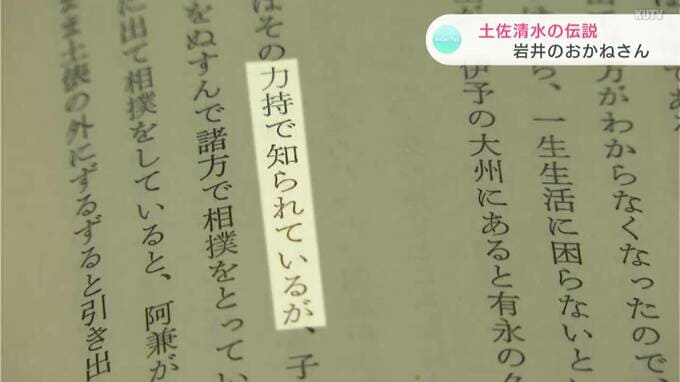 KUTV
土佐清水の伝説
岩井のおかねさん
である
方がわからなくなったので、
ら、一生生活に困らないと
伊予の大州にあると有永の
はその力持で知られているが、子
をぬすんで諸方で相撲をとってい
に出て相撲をしていると、阿兼が
まま土俵の外にずるずると引き出